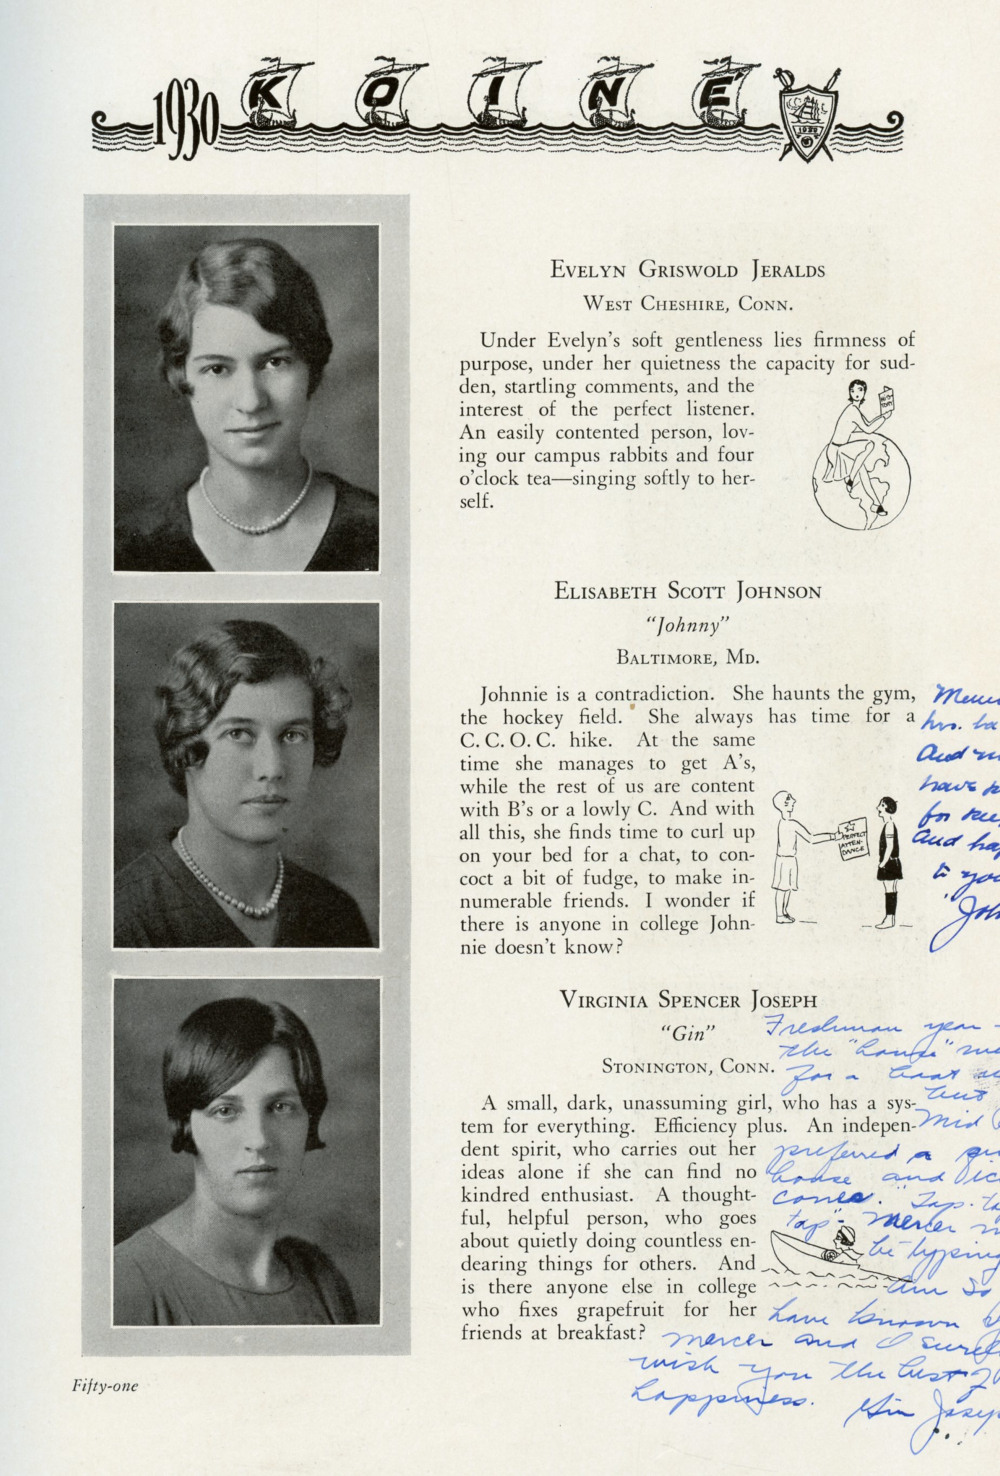 1930 KOINE
1930
EVELYN GRISWOLD JERALDS
WEST CHESHIRE, CONN.
Under Evelyn's soft gentleness lies firmness of
purpose, under her quietness the capacity for sud-
den, startling comments, and the
interest of the perfect listener.
An easily contented person, lov-
ing our campus rabbits and four
o'clock tea—singing softly to her-
self.
ELISABETH SCOTT JOHNSON
"Johnny"
BALTIMORE, MD.
Johnnie is a contradiction. She haunts the gym,
the hockey field. She always has time for a
C. C. O. C. hike. At the same
time she manages to get A's,
while the rest of us are content
with B's or a lowly C. And with
all this, she finds time to curl up
on your bed for a chat, to con-
coct a bit of fudge, to make in-
numerable friends. I wonder if
there is anyone in college John-
nie doesn't know?
PERFECT
ATTEN-
DANCE
And
have
for
and
to you
VIRGINIA SPENCER JOSEPH
"Gin"
STONINGTON, CONN.
A small, dark, unassuming girl, who has a sys-
tem for everything. Efficiency plus. An indepen-
dent spirit, who carries out her
ideas alone if she can find no
kindred enthusiast. A thought-
ful, helpful person, who goes
about quietly doing countless en-
dearing things for others. And
is there anyone else in college
who fixes grapefruit for her
friends at breakfast?
Freshman year -
the "house"
for a boat
but
Mid
preferred a
house and
comes. "Tap-
tap"- Mercer
be typing
am so
have known
Mercer and I surely
wish you the best of
happiness. Gin Joseph
Fifty-one